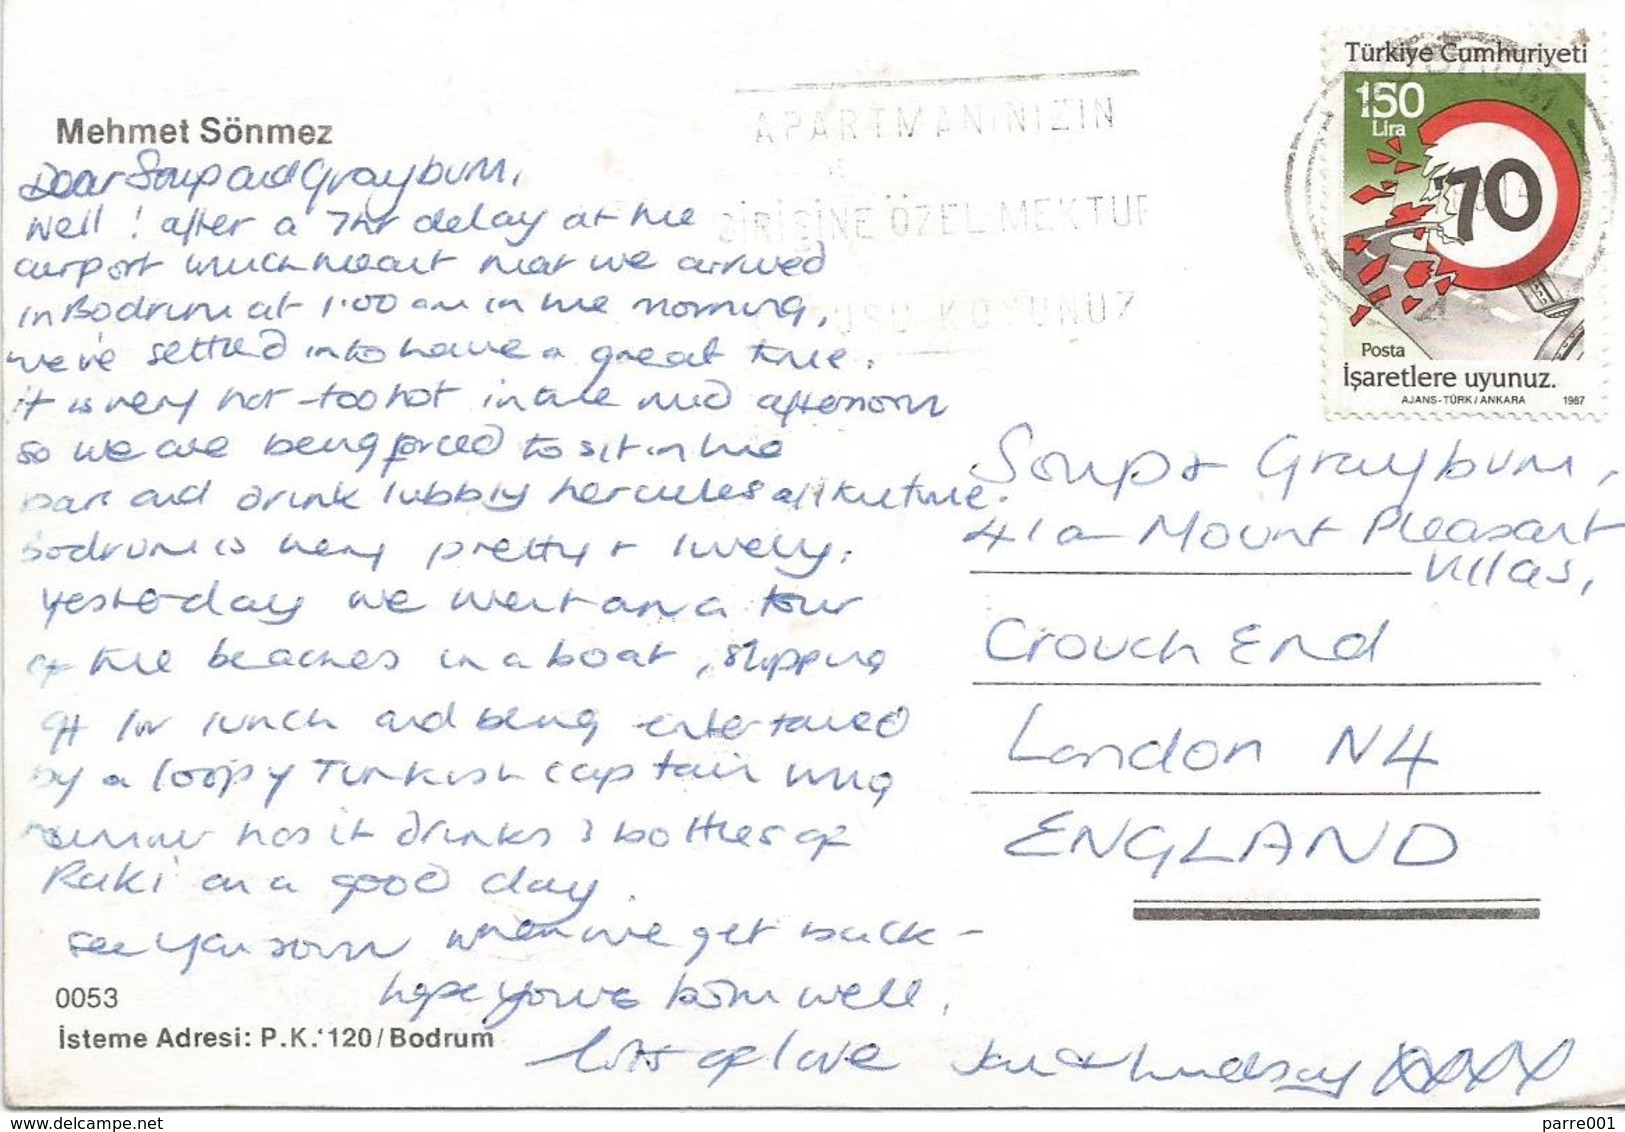 Mehmet Sönmez
Dear Soup and Grayburn,
Well! after a 7hr delay at the
airport which meant that we arrived
in Bodrum at 1.00 am in the morning,
we've settled into have a great time.
it is very hot - too hot in the mid afternoon
so we are being forced to sit in the
bar and drink lubbly hercules all the time.
Bodrum is very pretty & lively.
Yesterday we went on a tour
of the beaches in a boat, stopping
off for lunch and being entertained
by a loopy Turkish captain who
rumour has it drinks 3 bottles of
Raki on a good day.
see you soon when we get back -
hope you're both well,
lots of love Jan & Lyndsay XXXX
0053
İsteme Adresi: P.K.'120/Bodrum
APARTMANINIZIN
GİRİŞİNE ÖZEL MEKTUP
KUTUSU KOYUNUZ
Türkiye Cumhuriyeti
150
Lira
70
Posta
İşaretlere uyunuz.
AJANS-TÜRK/ANKARA 1987
Soup & Grayburn,
41a Mount Pleasant
Villas,
Crouch End
London N4
ENGLAND
delcampe.net
parre001